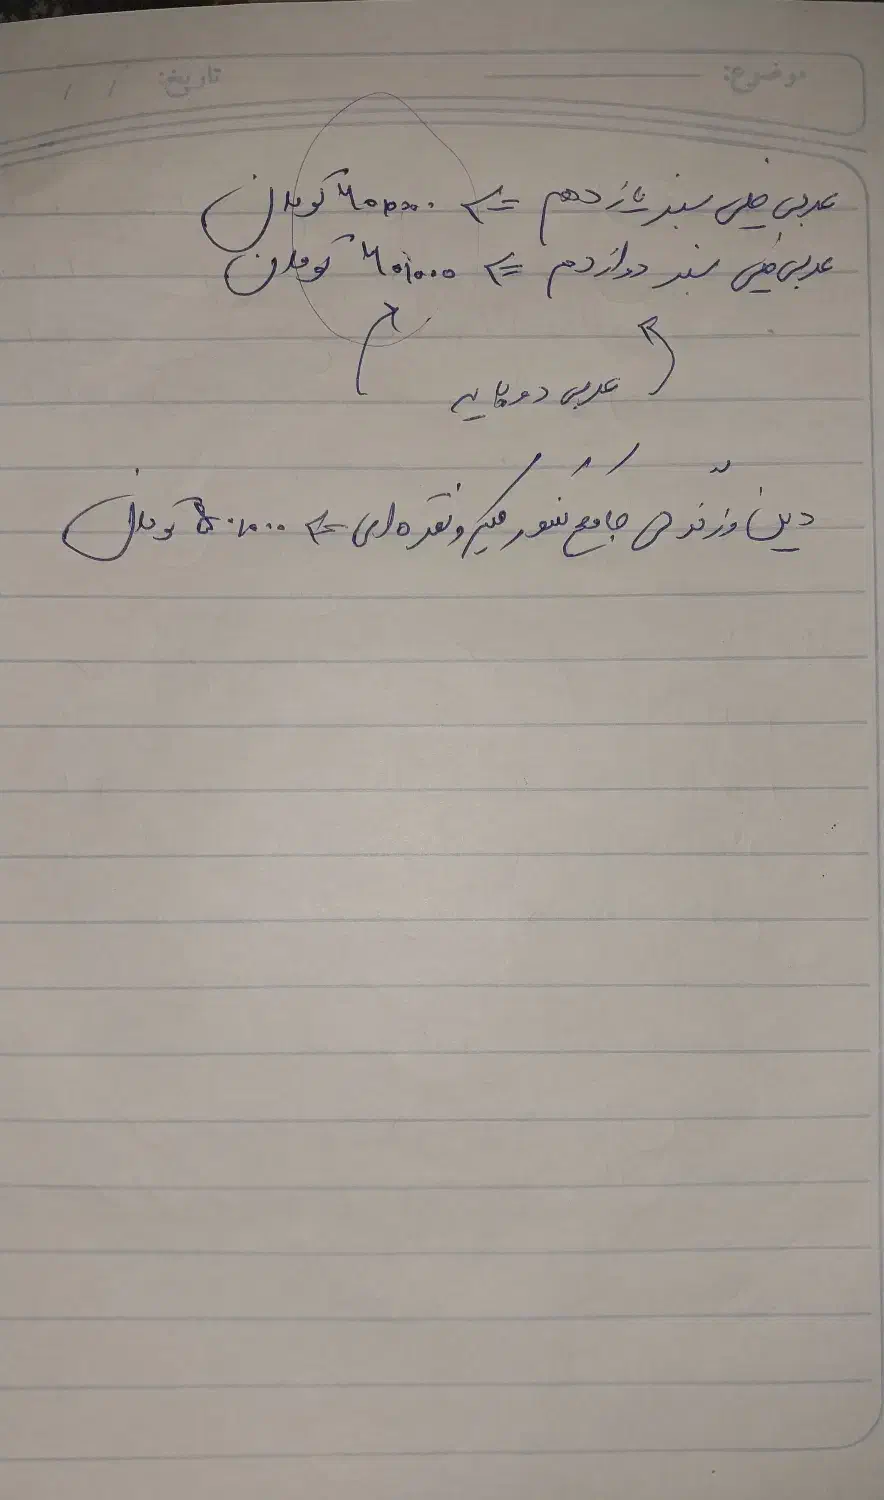 موضوع: تاریخ: / /
عربی خیلی سبز یازدهم => تومان
عربی خیلی سبز دوازدهم => تومان
عربی دو پایه
دین و زندگی جامع کنکور میکرو نقره ای => تومان